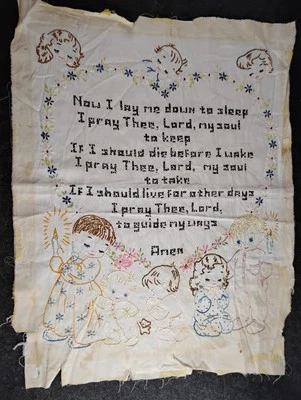 Now I lay me down to sleep
I pray Thee, Lord, my soul
to keep
If I should die before I wake
I pray Thee, Lord, my soul
to take
If I should live for other days
I pray Thee, Lord,
to guide my ways
Amen